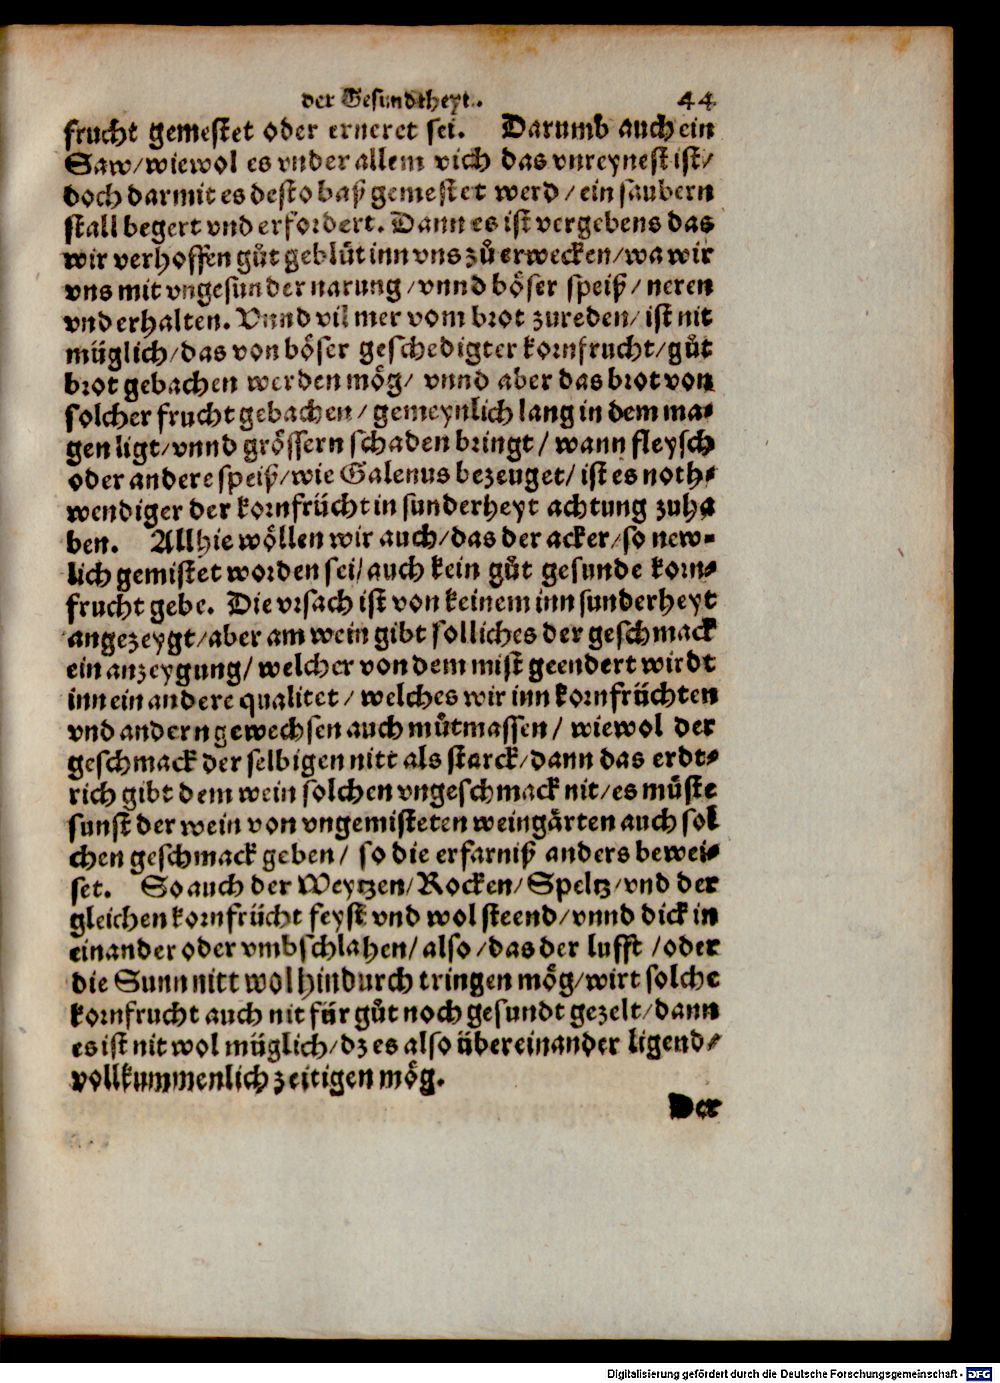 der Gesundtheyt. 44
frucht gemestet oder erneret sei. Darumb auch ein
Saw/wiewol es vnder allem vich das vnreynest ist/
doch darmit es desto baß gemestet werd/ein saubern
stall begert vnd erfordert. Dann es ist vergebens das
wir verhoffen gůt geblüt inn vns zů erwecken/wa wir
vns mit vngesunder narung/vnnd böser speiß/neren
vnd erhalten. Vnnd vil mer vom brot zureden/ist nit
müglich/das von böser geschedigter kornfrucht/gůt
brot gebachen werden mög/ vnnd aber das brot von
solcher frucht gebachen/gemeynlich lang in dem ma⸗
gen ligt/vnnd grössern schaden bringt/wann fleysch
oder andere speiß/wie Galenus bezeuget/ist es noth⸗
wendiger der kornfrücht in sunderheyt achtung zuha
ben. Allhie wöllen wir auch/das der acker/so new⸗
lich gemistet worden sei/auch kein gůt gesunde korn⸗
frucht gebe. Die vrsach ist von keinem inn sunderheyt
angezeygt/aber am wein gibt solliches der geschmack
ein anzeygung/welcher von dem mist geendert wirdt
inn ein andere qualitet/welches wir inn kornfrüchten
vnd andern gewechsen auch můtmassen/wiewol der
geschmack der selbigen nitt als starck/dann das erdt⸗
rich gibt dem wein solchen vngeschmack nit/es müste
sunst der wein von vngemisteten weingärten auch sol
chen geschmack geben/ so die erfarniß anders bewei⸗
set. So auch der Weytzen/Rocken/Speltz/vnd der
gleichen kornfrücht feyst vnd wol steend/vnnd dick in
einander oder vmbschlahen/also/das der lufft/oder
die Sunn nitt wol hindurch tringen mög/wirt solche
kornfrucht auch nit für gůt noch gesundt gezelt/dann
es ist nit wol müglich/dz es also übereinander ligend/
vollkummenlich zeitigen mög.
Der
Digitalisierung gefördert durch die Deutsche Forschungsgemeinschaft - DFG